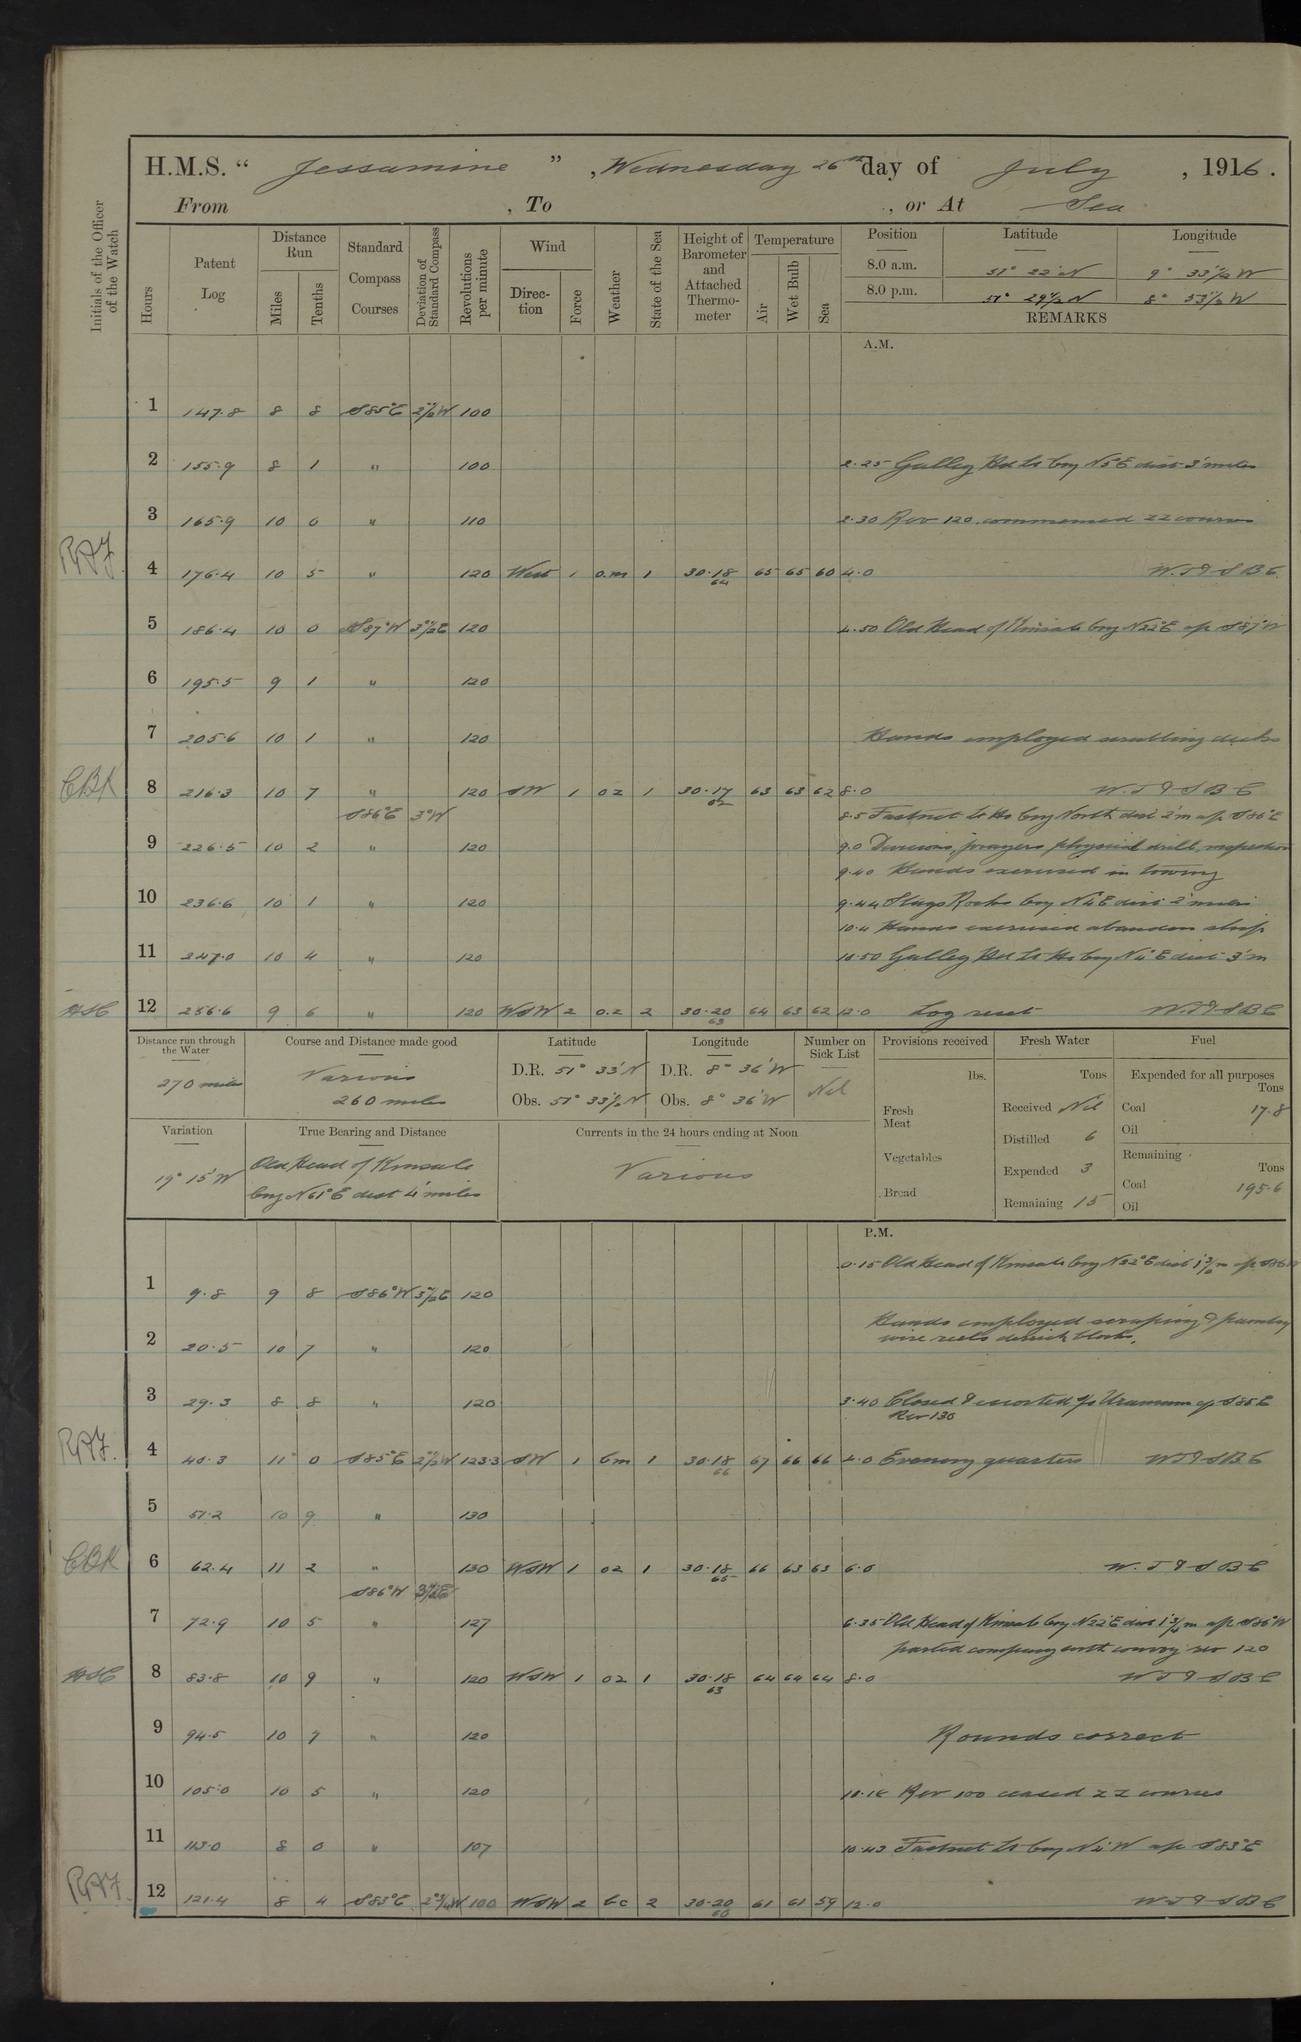 H.M.S. “ Jessamine ” , Wednesday 26th day of July , 1916 .
From , To , or At Sea
Initials of the Officer of the Watch
Hours
Patent Log
Distance Run
Miles
Tenths
Standard Compass Courses
Deviation of Standard Compass
Revolutions per minute
Wind
Direction
Force
Weather
State of the Sea
Height of Barometer and Attached Thermometer
Temperature
Air
Wet Bulb
Sea
Position Latitude Longitude
8.0 a.m. 51° 22' N 9° 33½' W
8.0 p.m. 51° 29½' N 8° 53½' W
REMARKS
A.M.
1 147.8 8 8 S85°E 2½°W 100
2 155.9 8 1 " 100 2.25 Galley Hd Lt brg N5°E dist 3' miles
3 165.9 10 0 " 110 2.30 Rev 120 commenced ZZ courses
RAJ. 4 176.4 10 5 " 120 West 1 o.m 1 30.18 64 65 65 60 4.0 W.T & S B E
5 186.4 10 0 S87°W 3½°E 120 4.50 Old Head of Kinsale brg N22°E a/c S87°W
6 195.5 9 1 " 120
7 205.6 10 1 " 120 Hands employed scrubbing decks
CBK 8 216.3 10 7 " 120 SW 1 oz 1 30.17 62 63 63 62 8.0 W.T & S B E
S86°E 3°W 8.5 Fastnet Lt Ho brg North dist 2'm a/c S86°E
9 226.5 10 2 " 120 9.0 Divisions, prayers physical drill, inspection
9.40 Hands exercised in towing
10 236.6 10 1 " 120 9.44 Stags Rocks brg N4°E dist 2' miles
10.4 Hands exercised abandon ship
11 247.0 10 4 " 120 10.50 Galley Hd Lt Ho brg N4°E dist 3'm
12 256.6 9 6 " 120 WSW 2 o.z 2 30.20 63 64 63 62 12.0 Log reset W.T & S B E
Distance run through the Water
270 miles
Course and Distance made good
Various
260 miles
Latitude
D.R. 51° 33' N
Obs. 51° 33½' N
Longitude
D.R. 8° 36' W
Obs. 8° 36' W
Number on Sick List
Nil
Provisions received
lbs.
Fresh Meat
Vegetables
Bread
Fresh Water
Tons
Received Nil
Distilled 6
Expended 3
Remaining 15
Fuel
Expended for all purposes
Tons
Coal 17.8
Oil
Remaining
Tons
Coal 195.6
Oil
Variation
19° 15' W
True Bearing and Distance
Old Head of Kinsale
brg N61°E dist 4' miles
Currents in the 24 hours ending at Noon
Various
P.M.
0.15 Old Head of Kinsale brg N22°E dist a/c S86°W
1 9.8 9 8 S86°W 3½°E 120
Hands employed scraping &
2 20.5 10 7 " 120 wire reels derrick blocks,
3 29.3 8 8 " 120 3.40 Closed & escorted a/c S85°E
Rev 130
RAJ. 4 40.3 11 0 S85°E 2½°W 123.3 SW 1 bm 1 30.18 66 67 66 66 4.0 Evening quarters W T & S B E
5 51.2 10 9 " 130
CBK 6 62.4 11 2 " 130 WSW 1 oz 1 30.18 65 66 63 63 6.0 W. T & S B E
S86°W 3½°E
7 72.9 10 5 " 127 6.35 Old Head of Kinsale brg N22°E dist 1¾'m a/c S86°W
parted company with convoy rev 120
8 83.8 10 9 " 120 WSW 1 oz 1 30.18 63 64 64 64 8.0 W T & S B E
9 94.5 10 7 " 120 Rounds correct
10 105.0 10 5 " 120 Rev 100 ceased ZZ courses
11 113.0 8 0 " 107 10.43 Fastnet Lt brg N4°W a/c S83°E
RAJ. 12 121.4 8 4 S83°E 2¾°W 100 WSW 2 bc 2 30.20 60 61 61 59 12.0 W T & S B E